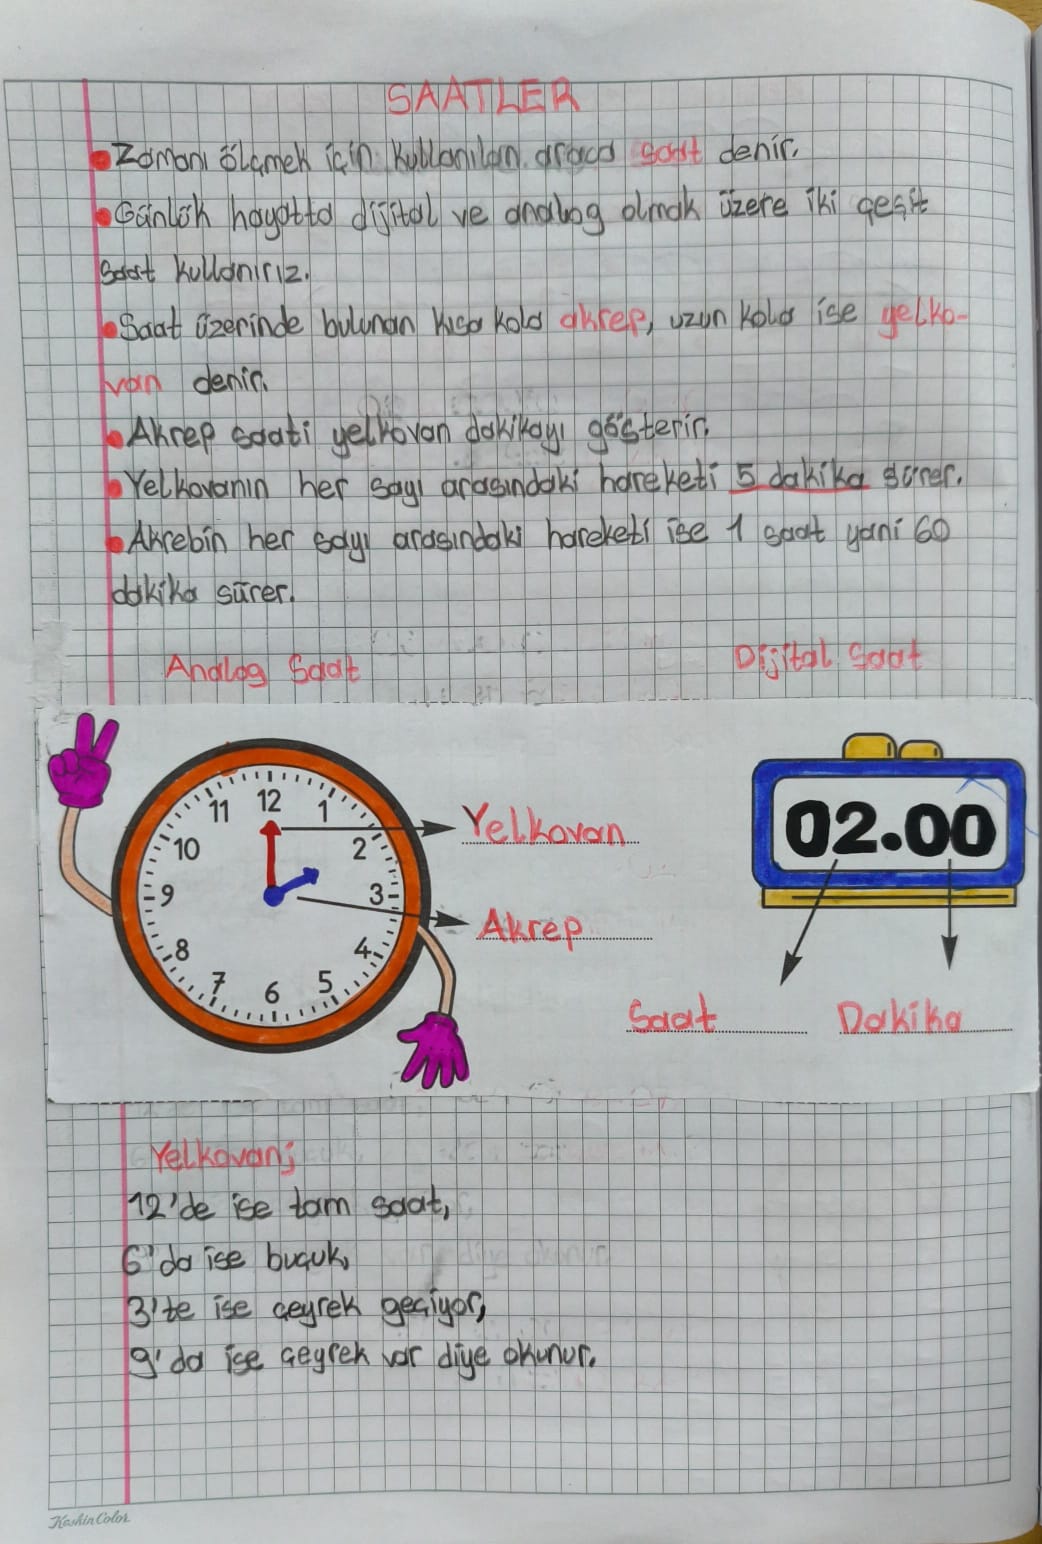 SAATLER
Zamanı ölçmek için kullanılan araca saat denir.
Günlük hayatta dijital ve analog olmak üzere iki çeşit
saat kullanırız.
Saat üzerinde bulunan kısa kola akrep, uzun kola ise yelko-
van denir.
Akrep saati yelkovan dakikayı gösterir.
Yelkovanın her sayı arasındaki hareketi 5 dakika sürer.
Akrebin her sayı arasındaki hareketi ise 1 saat yani 60
dakika sürer.
Analog Saat
Dijital Saat
12
1
2
3
4
5
6
7
8
9
10
11
Yelkovan
Akrep
02.00
Saat
Dakika
Yelkovan;
12'de ise tam saat,
6'da ise buçuk,
3'te ise çeyrek geçiyor,
9'da ise çeyrek var diye okunur.
KashinColor